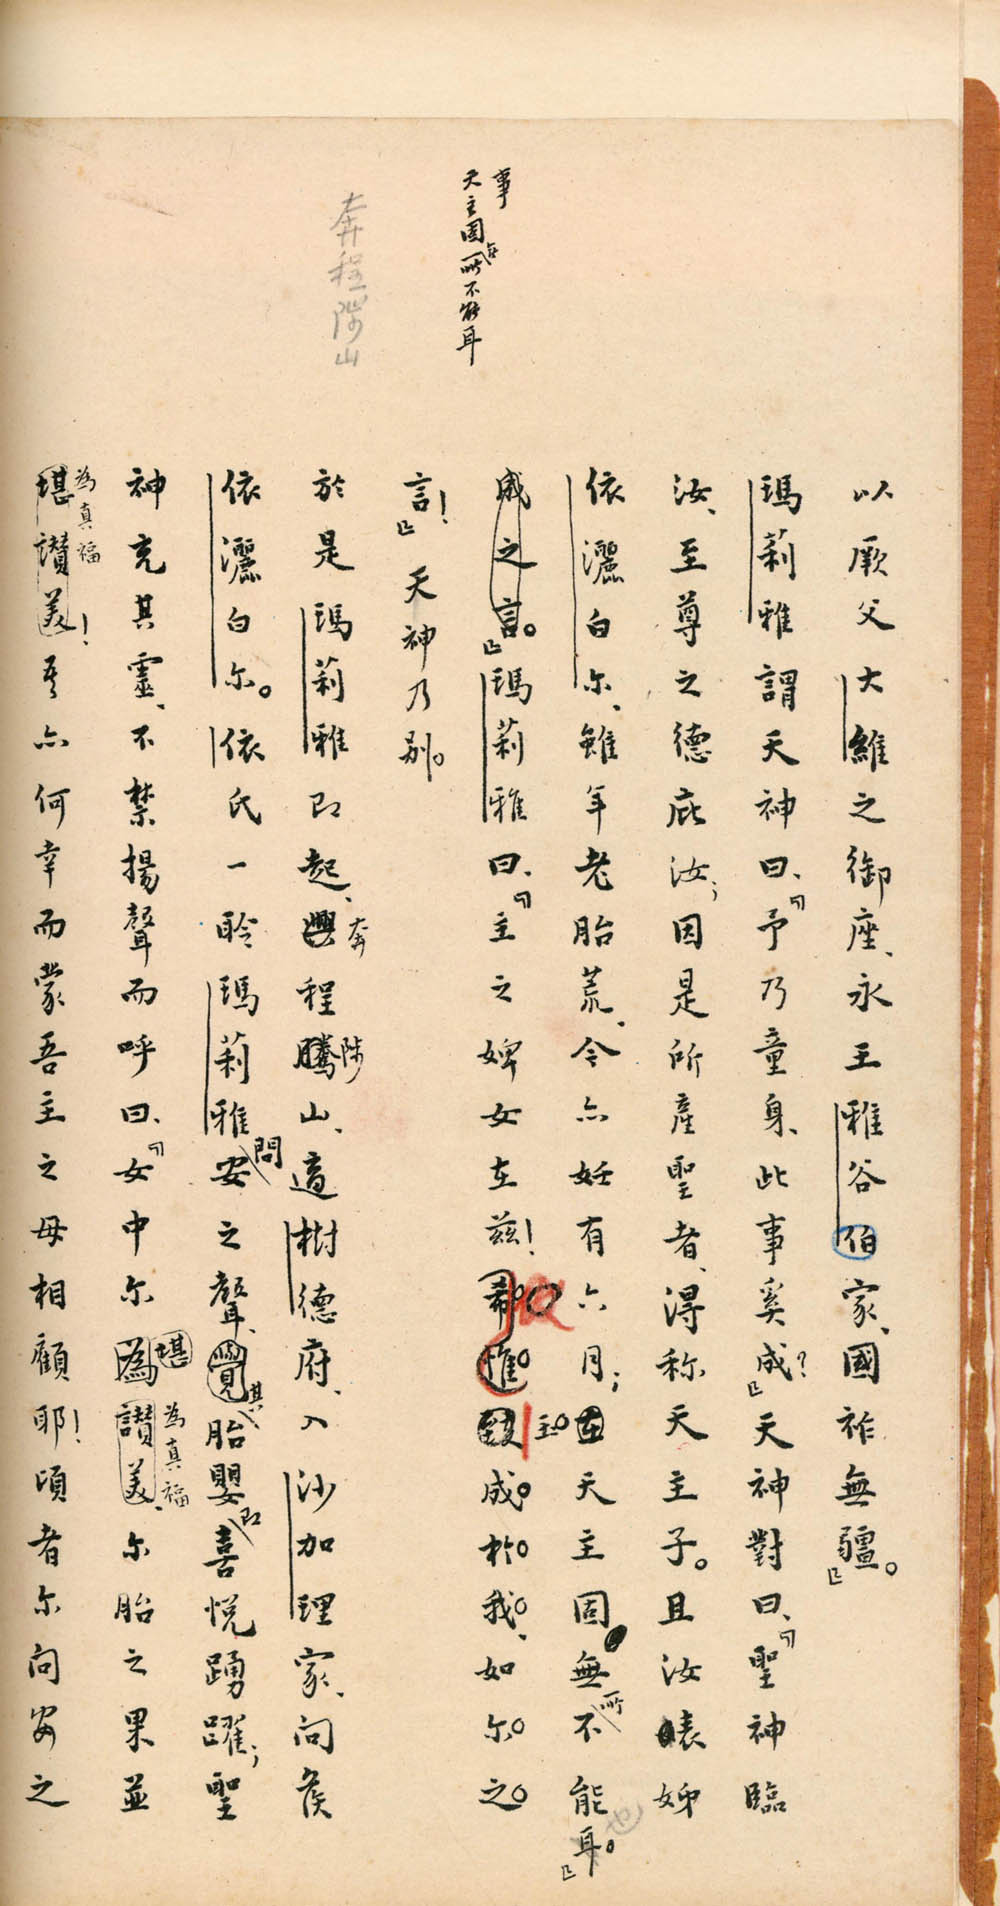 以厥父大維之御座、永王雅谷伯家、國祚無疆。」
瑪莉雅謂天神曰、「予乃童身、此事奚成？」天神對曰、「聖神臨
汝、至尊之德庇汝；因是所產聖者、得称天主子。且汝表姊
依灑白尔、雖年老胎荒、今亦妊有六月；天主固無所不能耳。」
事
天主固無所不能耳
成之言。」瑪莉雅曰、「主之婢女在茲！惟主成於我、如尔之
言！」天神乃别。
奔程陟山
於是瑪莉雅即起、奔程陟山、適樹德府、入沙加理家、問候
依灑白尔。依氏一聆瑪莉雅問安之聲、覺其胎嬰即喜悅踴躍；聖
神充其靈、不禁揚聲而呼曰、「女中尔堪為讃美、尔胎之果並
為真福
堪讃美！吾亦何幸而蒙吾主之母相顧耶！頃者尔问安之
為真福